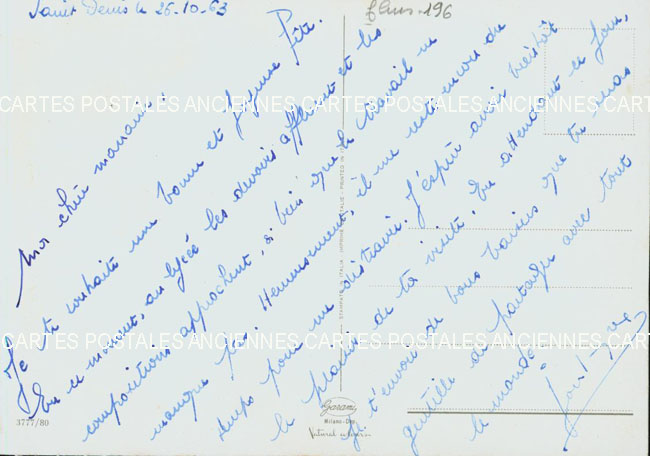 Saint Denis le 26-10-63
fleurs-196
Ma chère manami,
Je te souhaite une bonne et joyeuse fête.
En ce moment, au lycée les devoirs affluent et les
compositions approchent, si bien que le travail ne
manque pas. Heureusement, il me reste encore du
temps pour me distraire. J'espère avoir bientôt
le plaisir de ta visite. En attendant ce jour,
je t'envoie de bons baisers que tu seras
gentille de partager avec tout
le monde.
CARTES POSTALES ANCIENNES CARTES POSTALES ANCIENNES CART
CARTES POSTALES ANCIENNES CARTES POSTALES ANCIENNES CART
3777/80
Garami
Milano
Natural
STAMPATO IN ITALIA - IMPRIMÉ EN ITALIE - PRINTED IN